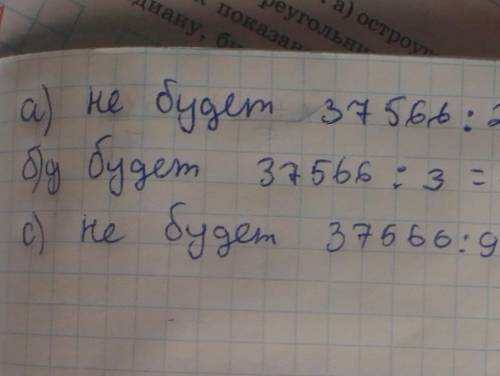 а) остроуг
треугольни
показан
диану, бу
а) не будет 37566 : 2
б) будет 37566 : 3 =
с) не будет 37566 : 9